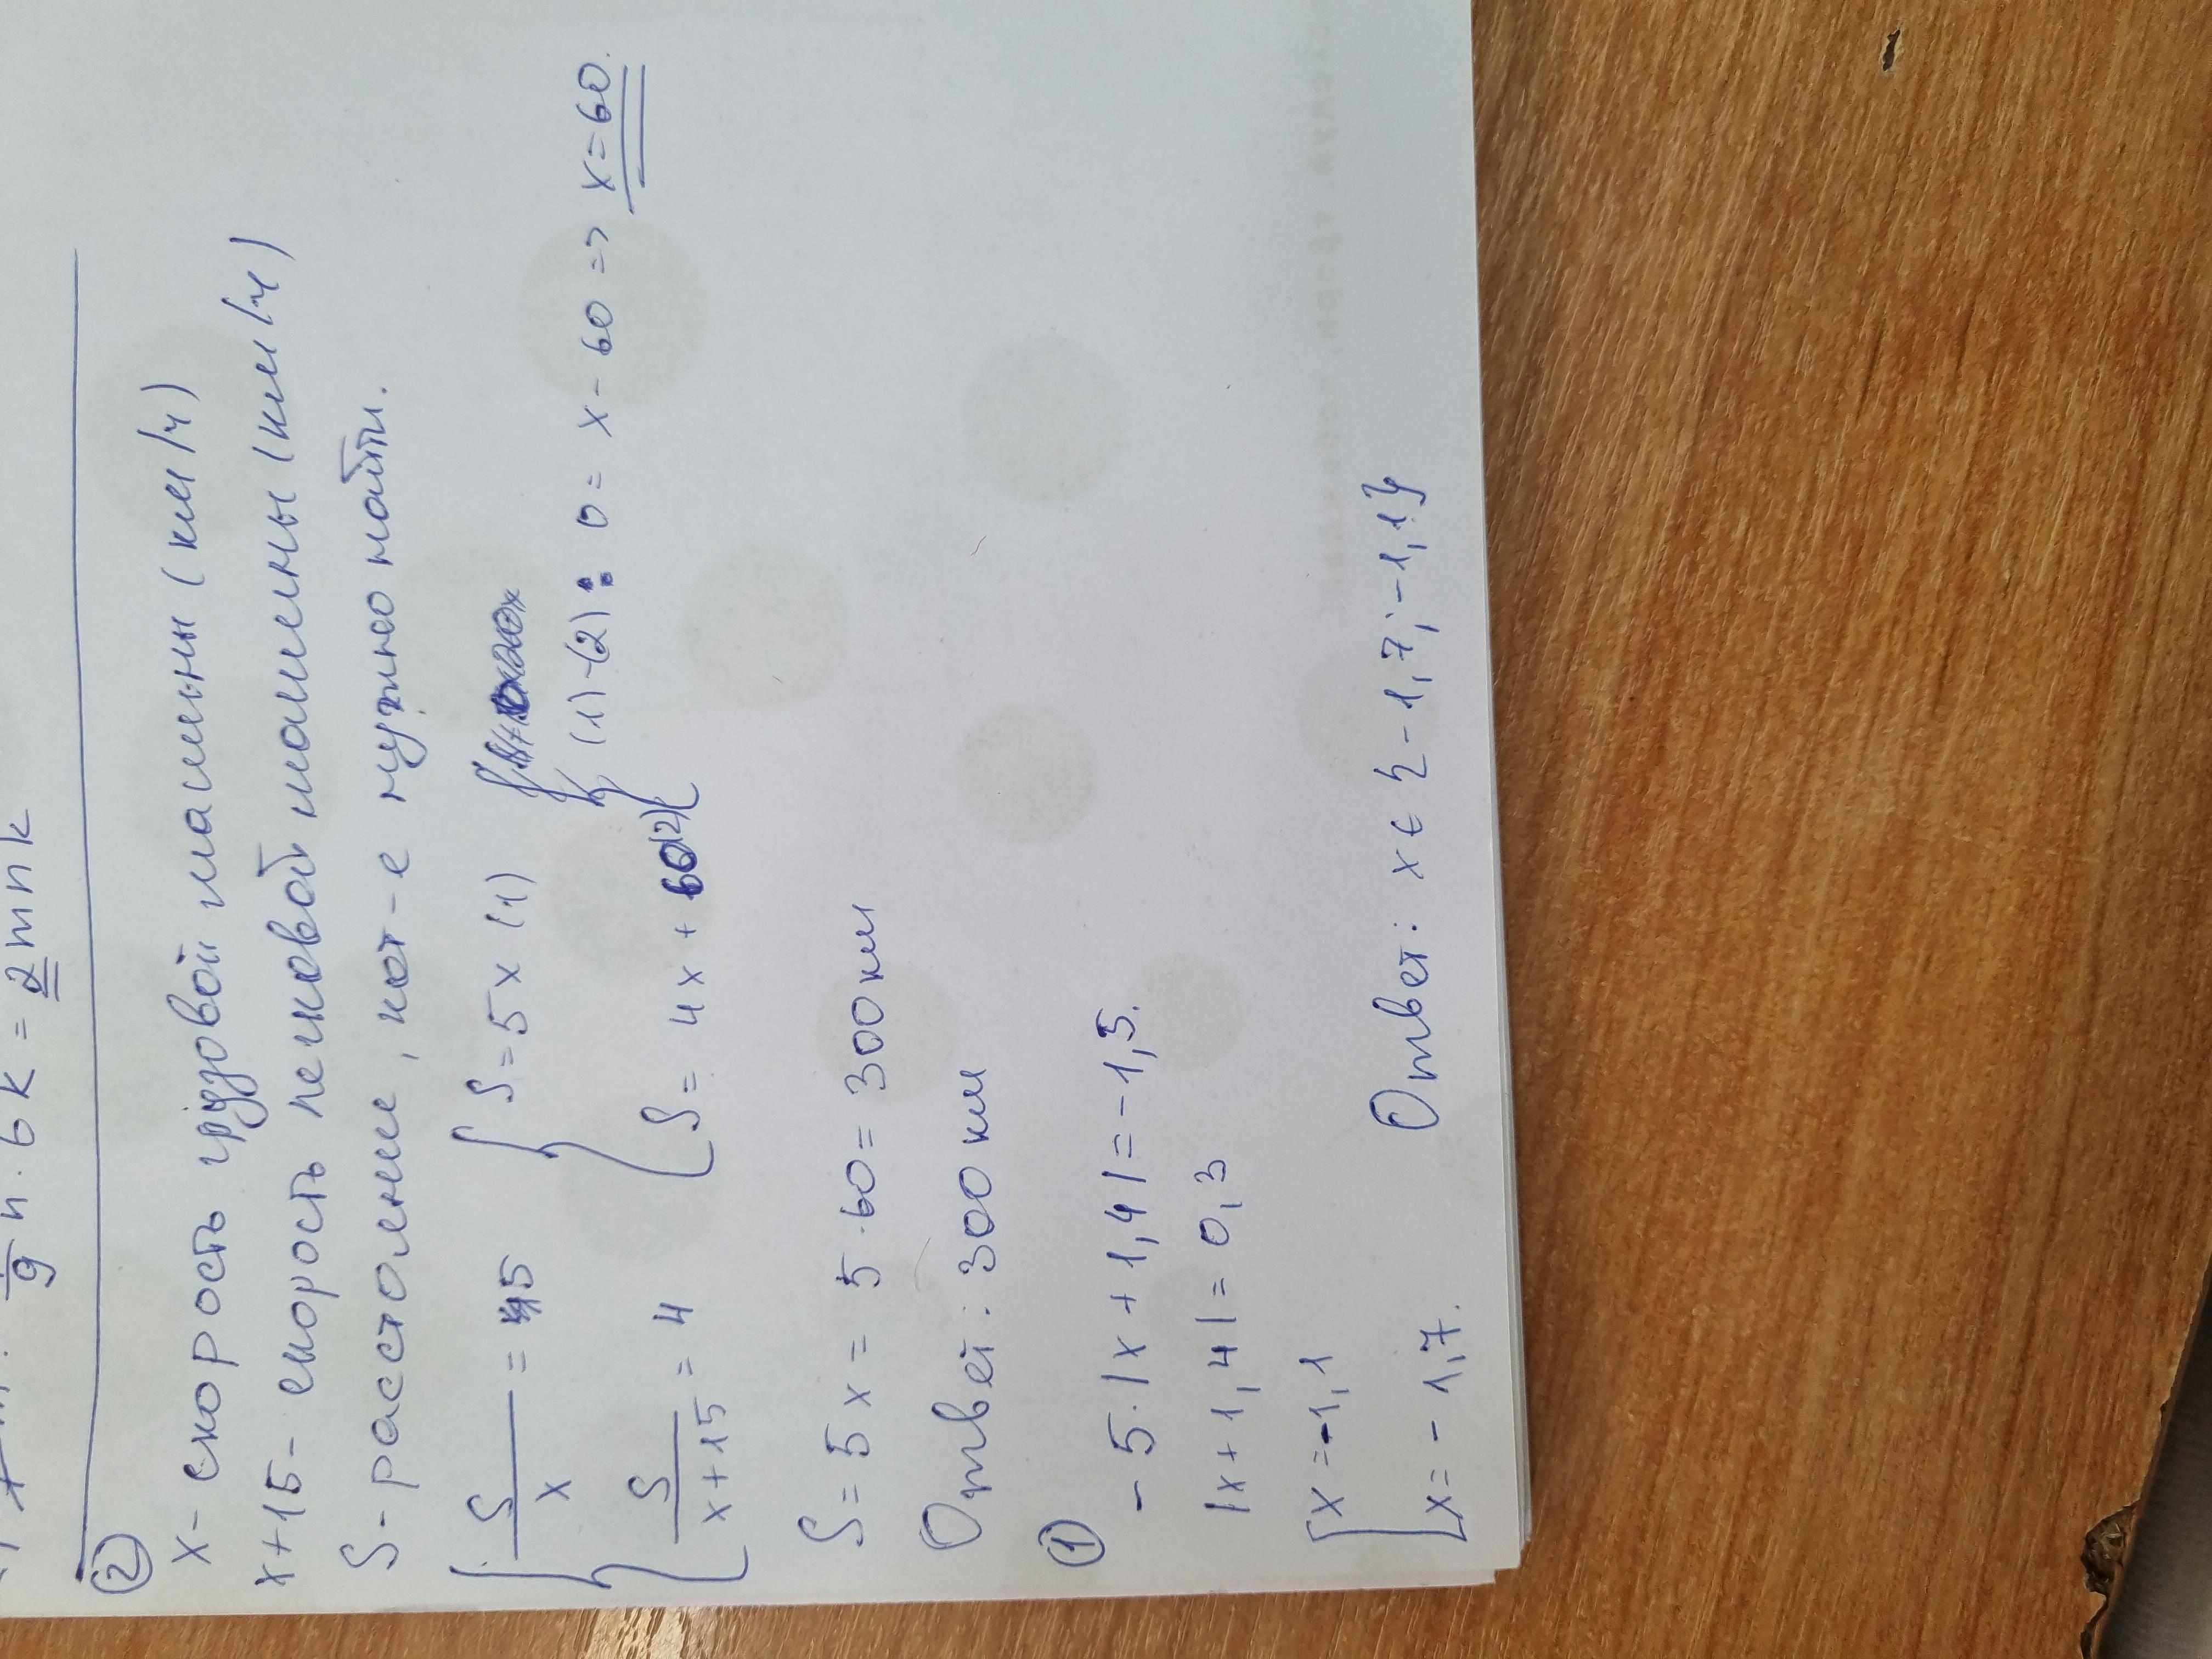 9 n · 6 k = 2 mnk
②
x - скорость грузовой машины (км/ч)
x+15 - скорость легковой машины (км/ч)
S - расстояние, кот-е нужно найти.
{ S/x = 5 { S = 5x (1)
{ S/(x+15) = 4 { S = 4x + 60 (2) { (1)-(2): 0 = x - 60 => x = 60.
S = 5x = 5 · 60 = 300 км
Ответ: 300 км
①
-5 · |x + 1,4| = -1,5.
|x + 1,4| = 0,3
[ x = -1,1
[ x = -1,7. Ответ: x ∈ {-1,7; -1,1}